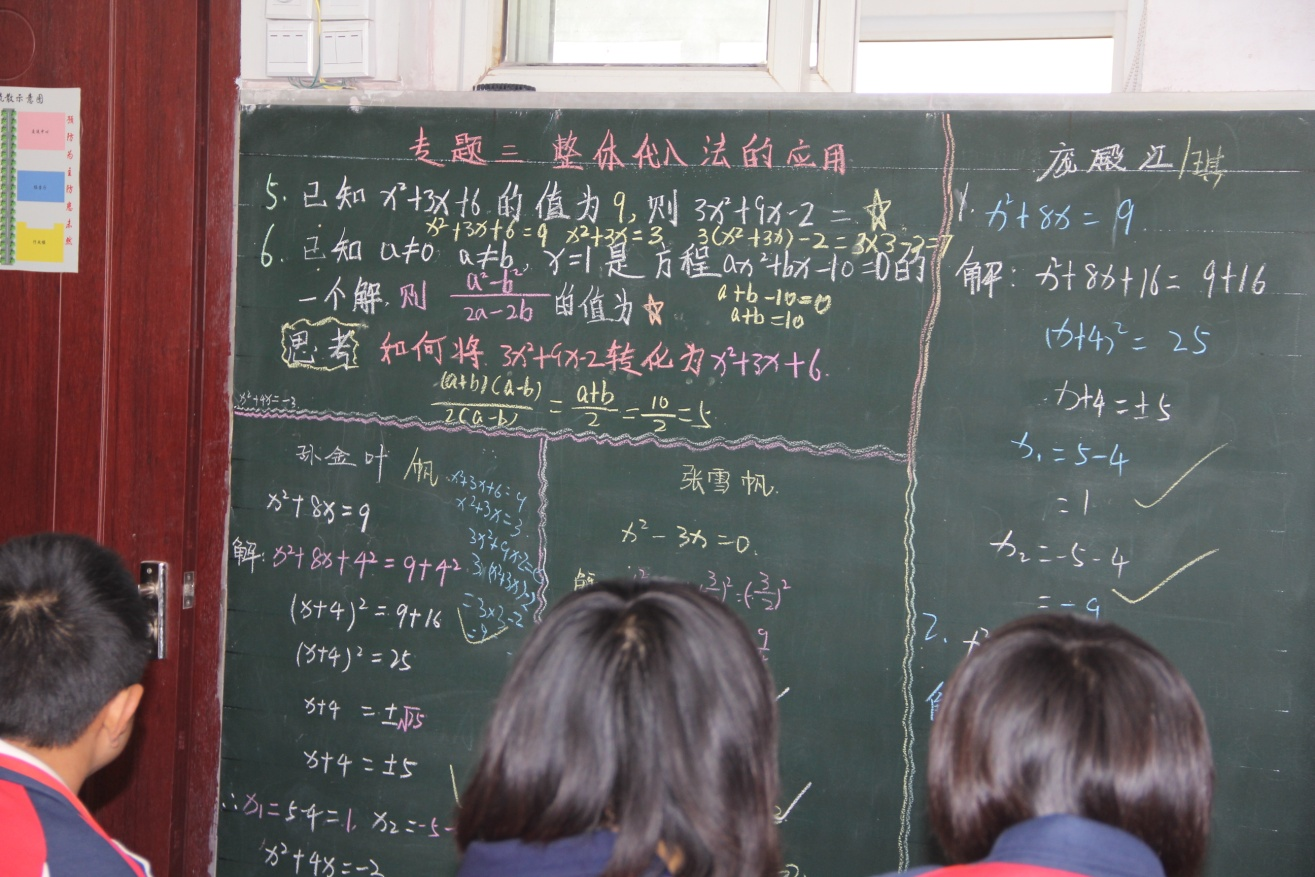 专题三 整体代入法的应用
5. 已知 x²+3x+6 的值为 9, 则 3x²+9x-2 = ☆
x²+3x+6=9 x²+3x=3 3(x²+3x)-2=3×3-2=7
6. 已知 a≠0 a≠b, x=1 是方程 ax²+bx-10=0 的
一个解, 则 (a²-b²)/(2a-2b) 的值为 ☆
a+b-10=0
a+b=10
思考 如何将 3x²+9x-2 转化为 x²+3x+6.
(a+b)(a-b)/2(a-b) = (a+b)/2 = 10/2 = 5
x²+4x=-3
孙金叶 帆
x²+8x=9
解: x²+8x+4²=9+4²
(x+4)²=9+16
(x+4)²=25
x+4 =±√25
x+4 =±5
∴x₁=5-4=1, x₂=-5-
x²+4x=-2
x²+3x=3
张雪帆
x²-3x=0.
庞殿江/琪
1. x²+8x=9
解: x²+8x+16=9+16
(x+4)²=25
x+4=±5
x₁=5-4
=1
x₂=-5-4
=-9
2.
散示意图
预防为主防患未然